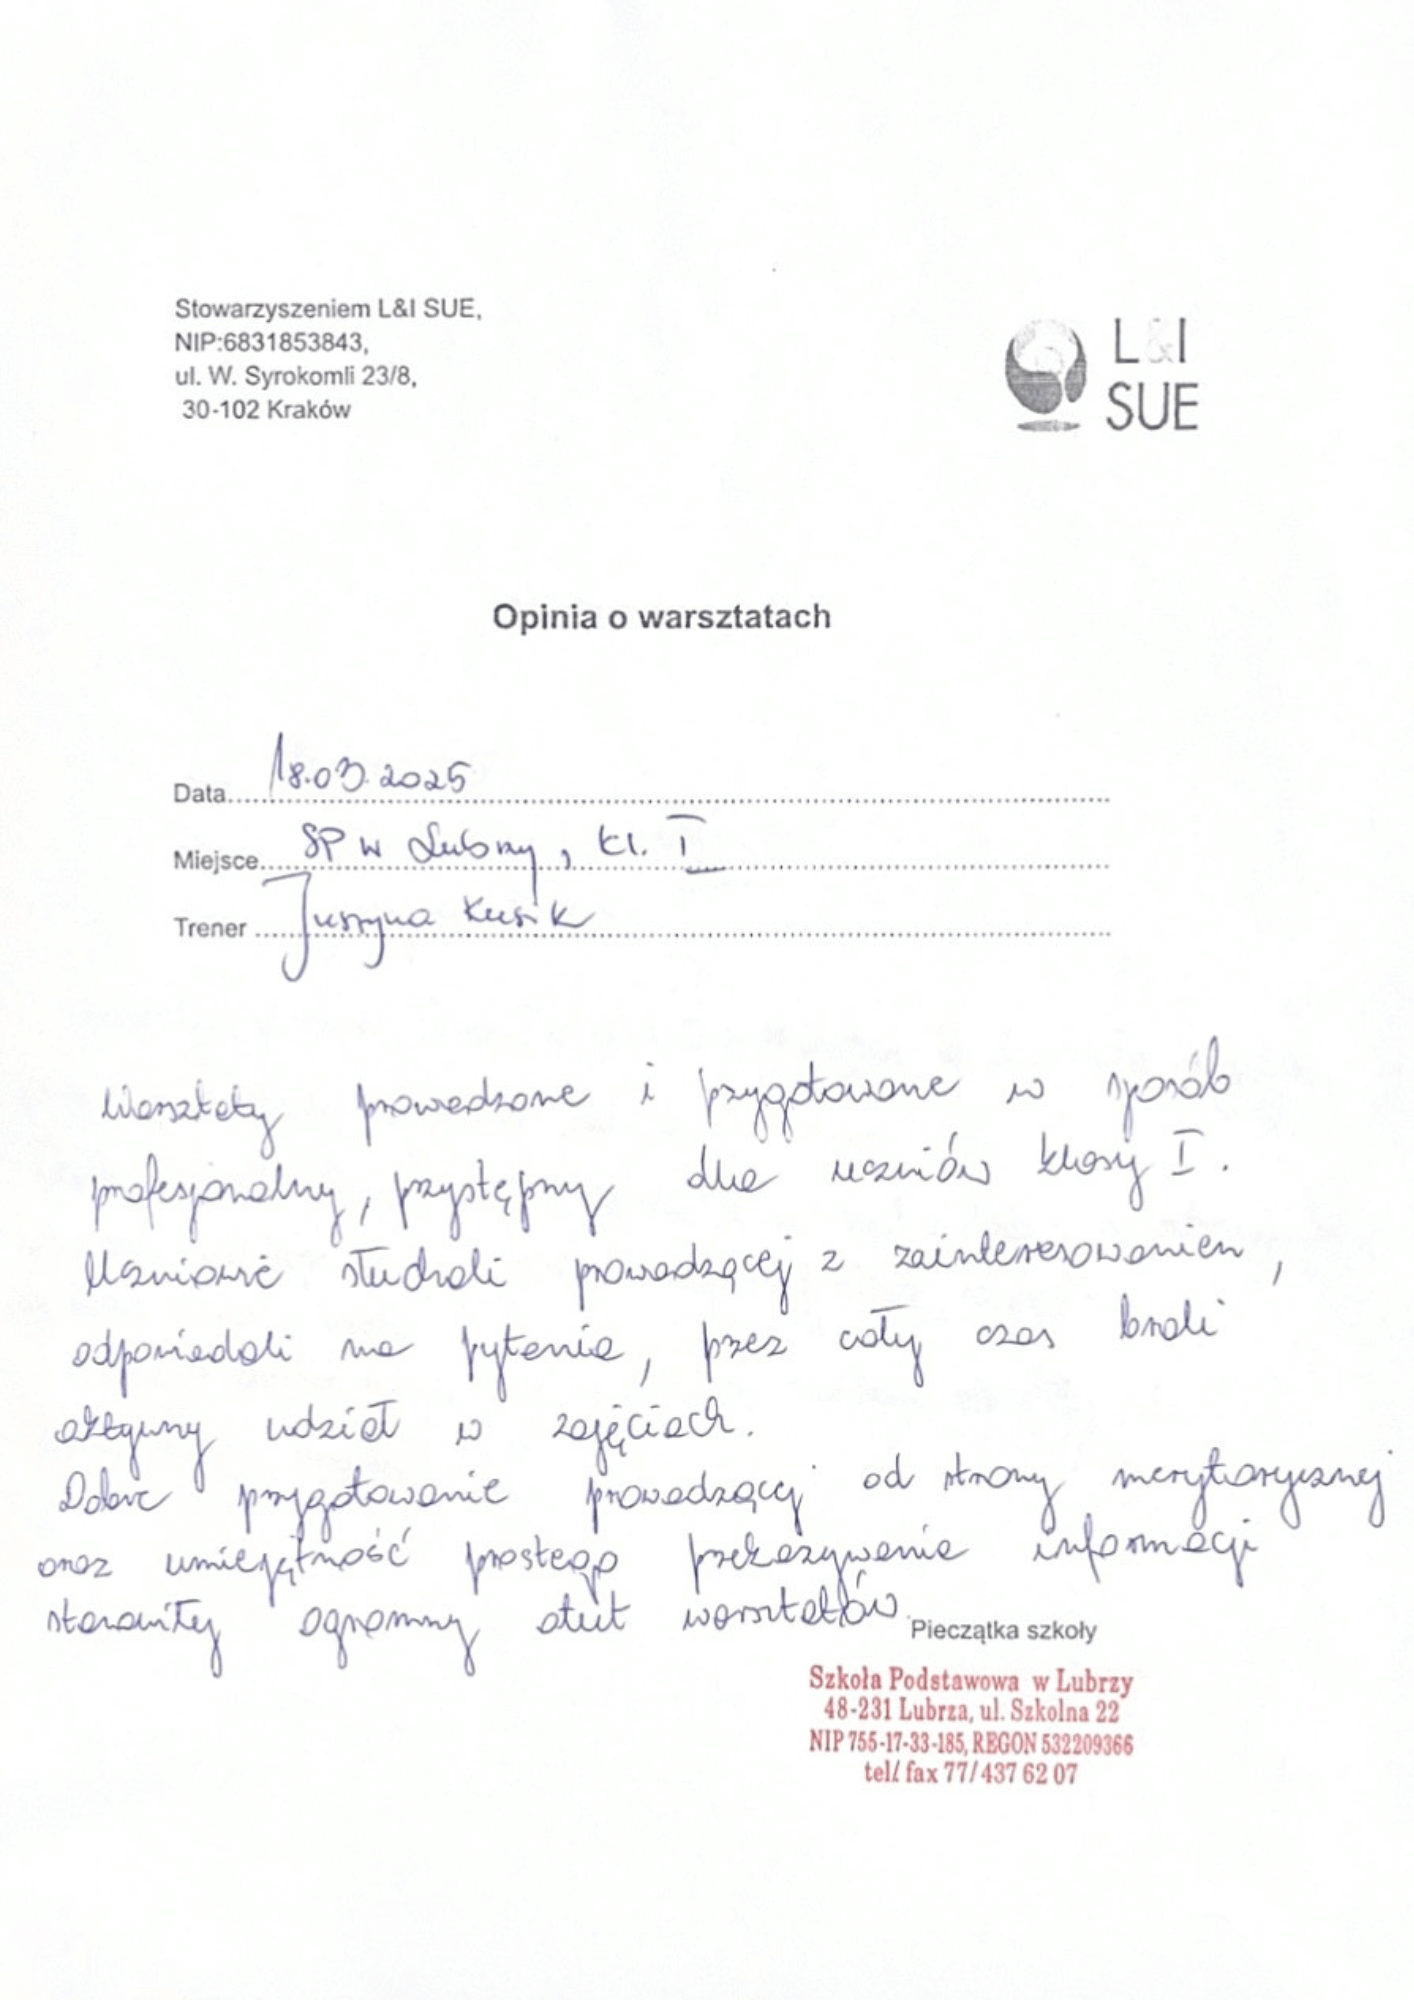 Stowarzyszeniem L&I SUE,
NIP:6831853843,
ul. W. Syrokomli 23/8,
30-102 Kraków
L&I
SUE
Opinia o warsztatach
Data 18.03.2025
Miejsce SP w Lubrzy, kl. I
Trener Justyna Kusik
Warsztaty prowadzone i przygotowane w sposób
profesjonalny, przystępny dla uczniów klasy I.
Uczniowie słuchali prowadzącej z zainteresowaniem,
odpowiadali na pytania, przez cały czas brali
aktywny udział w zajęciach.
Dobre przygotowanie prowadzącej od strony merytorycznej
oraz umiejętność prostego przekazywania informacji
stanowiły ogromny atut warsztatów.
Pieczątka szkoły
Szkoła Podstawowa w Lubrzy
48-231 Lubrza, ul. Szkolna 22
NIP 755-17-33-185, REGON 532209366
tel/ fax 77/ 437 62 07